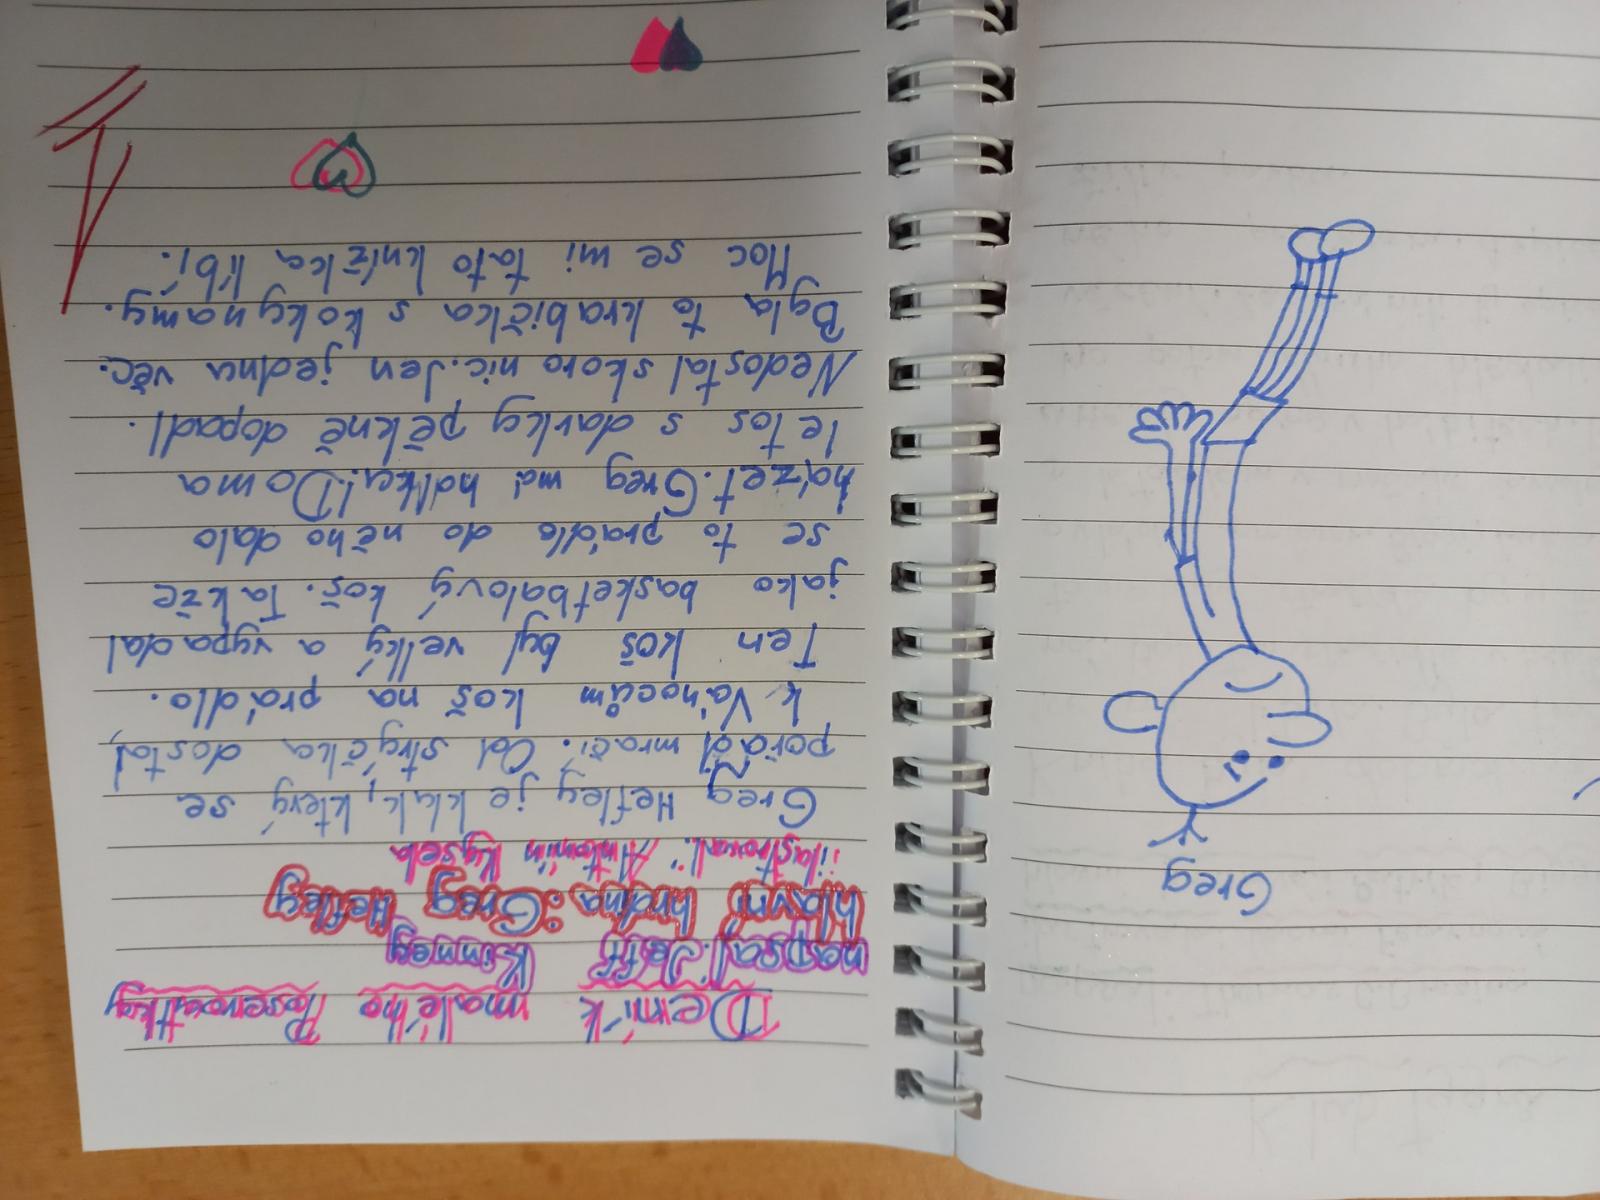 Greg
Deník malého Poseroutky
napsal: Jeff Kinney
hlavní hrdina: Greg Hefley
ilastroval: Antonín Kysela
Greg Hefley je kluk, který se
pořád mračí. Od strýčka dostal,
k Vánocům koš na prádlo.
Ten koš byl velký a vypadal
jako basketbalový koš. Takže
se to prádlo do něho dalo
házet. Greg má holku! Doma
letos s darky pěkně dopadl.
Nedostal skoro nic. Jen jednu věc.
Byla to krabička s kokynamy.
Moc se mi tato knížka líbí.